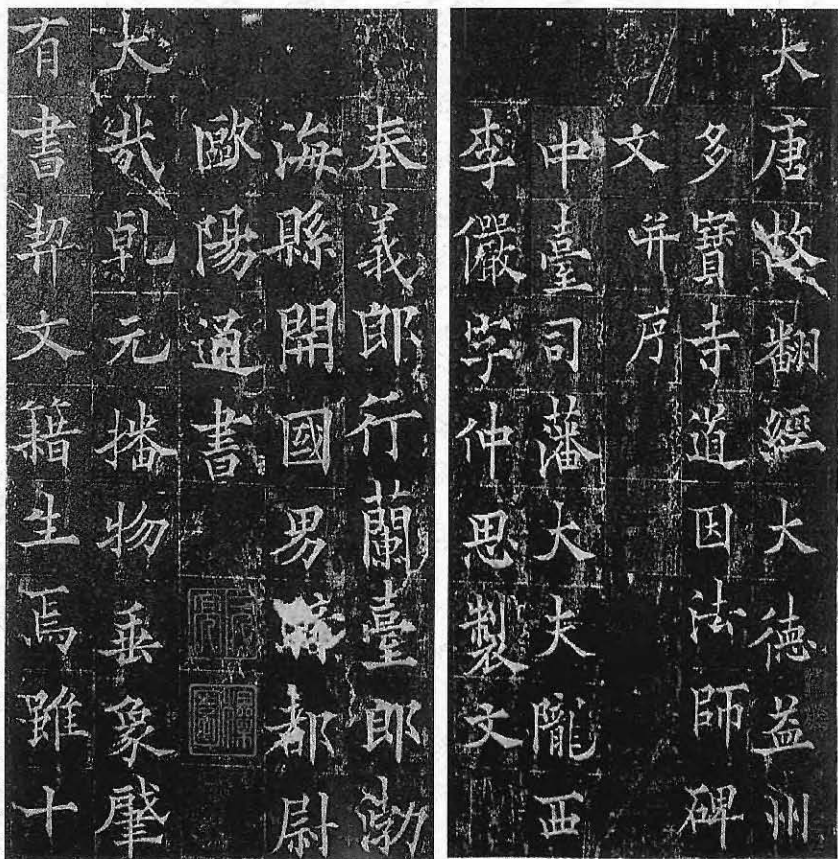 大唐故翻經大德益州
多寶寺道因法師碑
文并序
中臺司藩大夫隴西
李儼字仲思製文
奉義郎行蘭臺郎渤
海縣開國男都尉
歐陽通書
大哉乾元播物垂象肇
有書契文籍生焉雖十